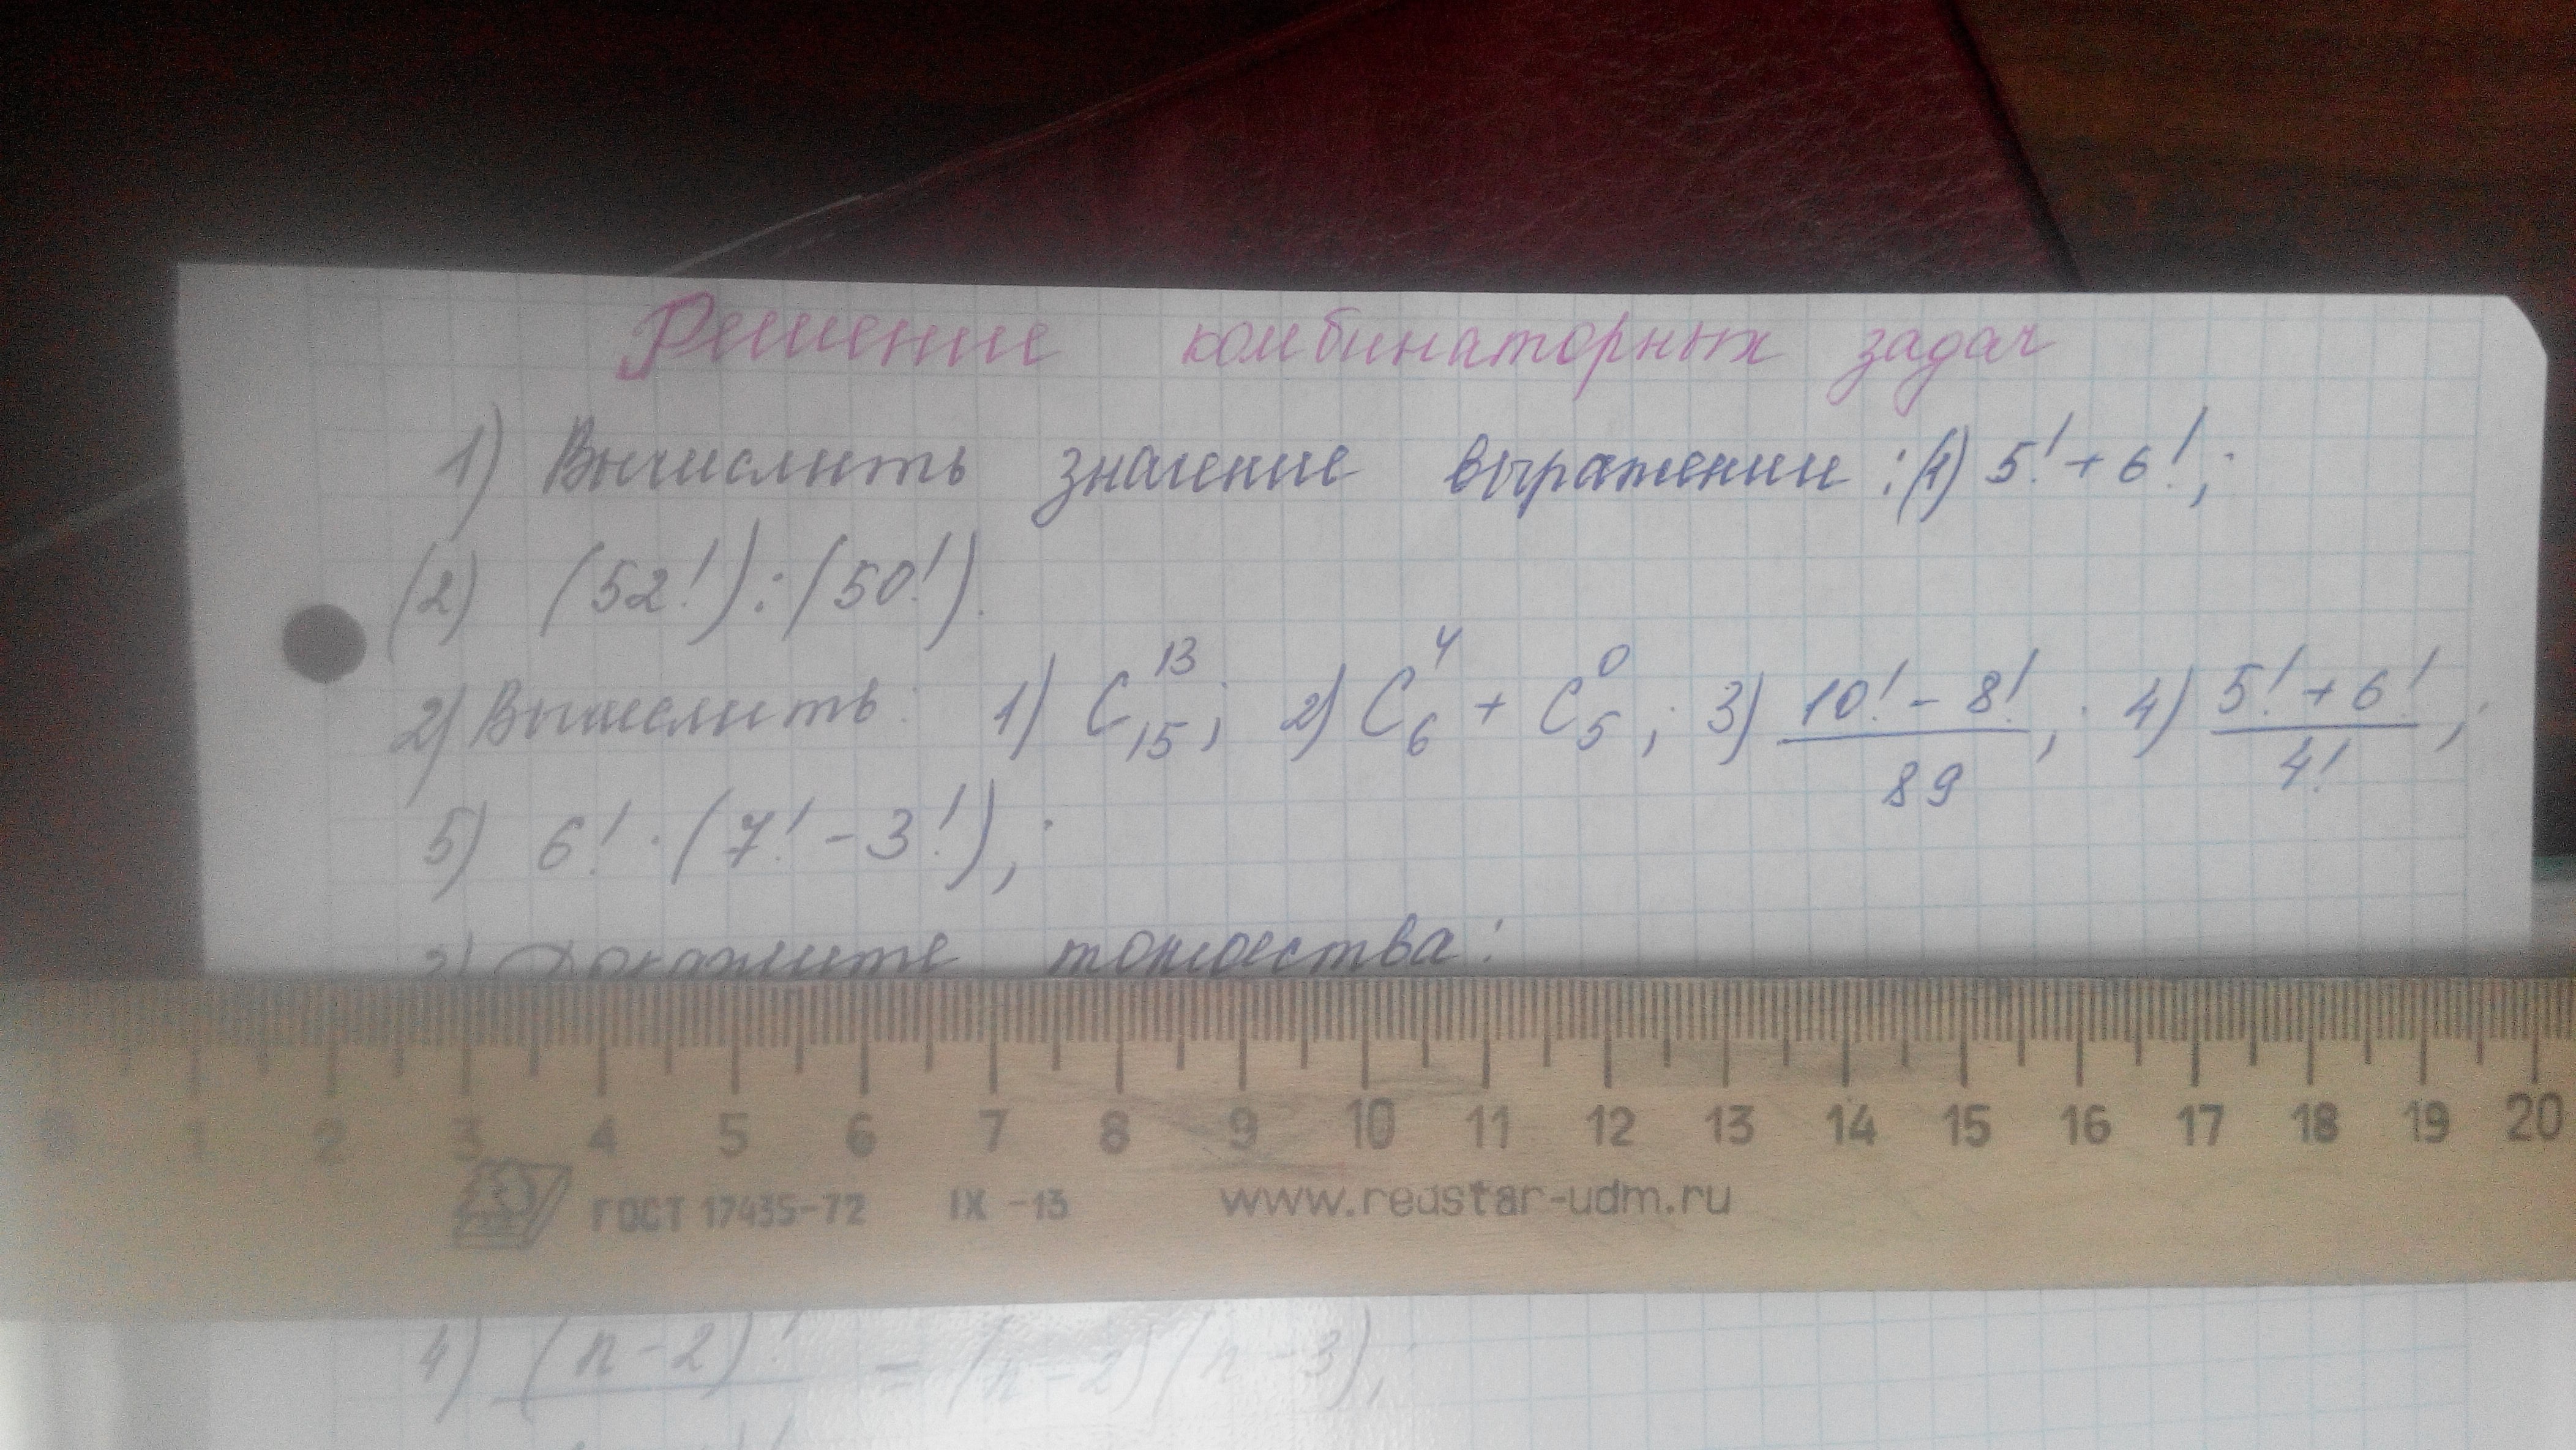 Решение комбинаторных задач
1) Вычислить значение выражении: (1) 5! + 6!;
(2) (52!) : (50!).
2) Вычислить: 1) C₁₅¹³; 2) C₆⁴ + C₅⁰; 3) (10! - 8!)/89; 4) (5! + 6!)/4!;
5) 6! · (7! - 3!);
3) Докажите тождества:
0 1 2 3 4 5 6 7 8 9 10 11 12 13 14 15 16 17 18 19 20
ГОСТ 17435-72 IX -13 www.redstar-udm.ru
4) (n-2)! = (n-2)(n-3);